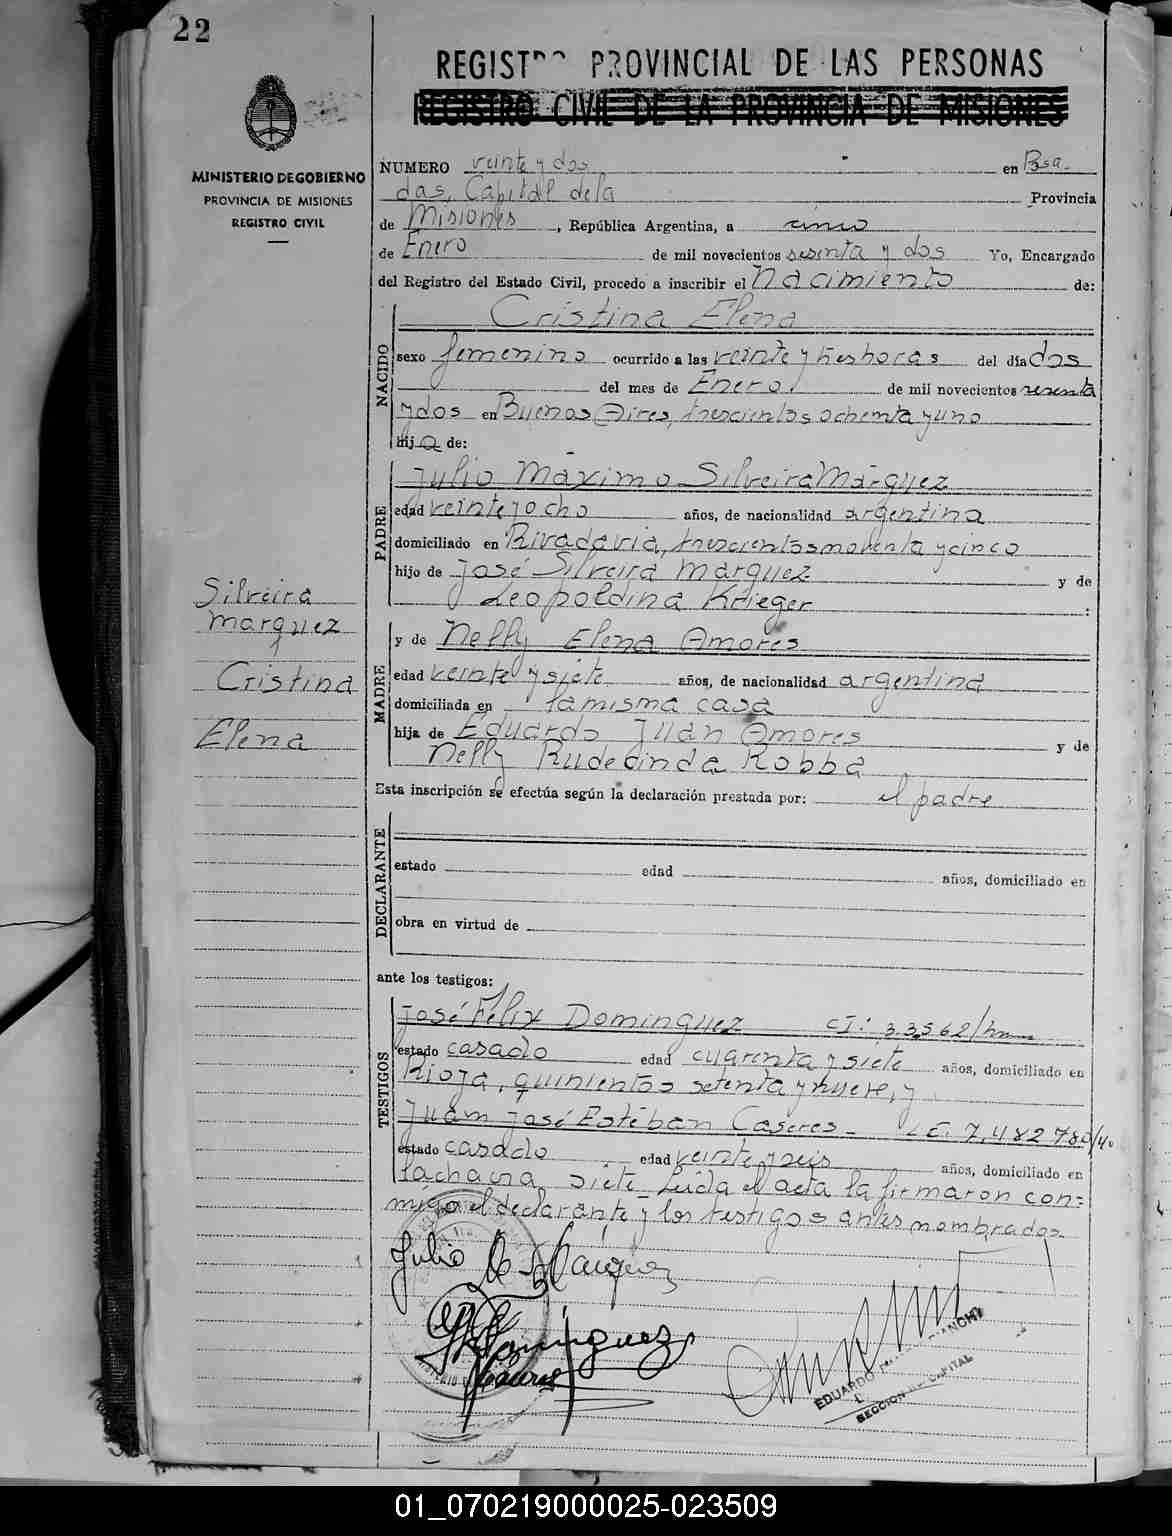 22
REGISTRO PROVINCIAL DE LAS PERSONAS
REGISTRO CIVIL DE LA PROVINCIA DE MISIONES
MINISTERIO DE GOBIERNO
PROVINCIA DE MISIONES
REGISTRO CIVIL
NUMERO veinte y dos en Posa-
das, Capital de la Provincia
de Misiones, República Argentina, a cinco
de Enero de mil novecientos sesenta y dos Yo, Encargado
del Registro del Estado Civil, procedo a inscribir el Nacimiento de:
NACIDO
Cristina Elena
sexo femenino ocurrido a las veinte y tres horas del día dos
del mes de Enero de mil novecientos sesenta
y dos en Buenos Aires, trescientos ochenta y uno
hija de:
PADRE
Julio Máximo Silveira Márquez
edad veinte y ocho años, de nacionalidad argentina
domiciliado en Rivadavia, trescientos noventa y cinco
hijo de José Silveira Marquez y de
Leopoldina Krieger :
Silveira
Marquez
Cristina
Elena
MADRE
y de Nelly Elena Amores
edad veinte y siete años, de nacionalidad argentina
domiciliada en la misma casa
hija de Eduardo Juan Amores y de
Nelly Rudecinda Robba
Esta inscripción se efectúa según la declaración prestada por: el padre
DECLARANTE
estado edad años, domiciliado en
obra en virtud de
ante los testigos:
TESTIGOS
José Félix Dominguez CI: 33562/
estado casado edad cuarenta y siete años, domiciliado en
Rioja, quinientos setenta y nueve, y
Juan José Estéban Caseres - L E. 7,482780/40
estado casado edad veinte y seis años, domiciliado en
la chacra siete - Leida el acta la firmaron con=
migo el declarante y los testigos antes nombrados
Julio Marquez
Dominguez
EDUARDO BIANCHI
SECCION CAPITAL
01_070219000025-023509